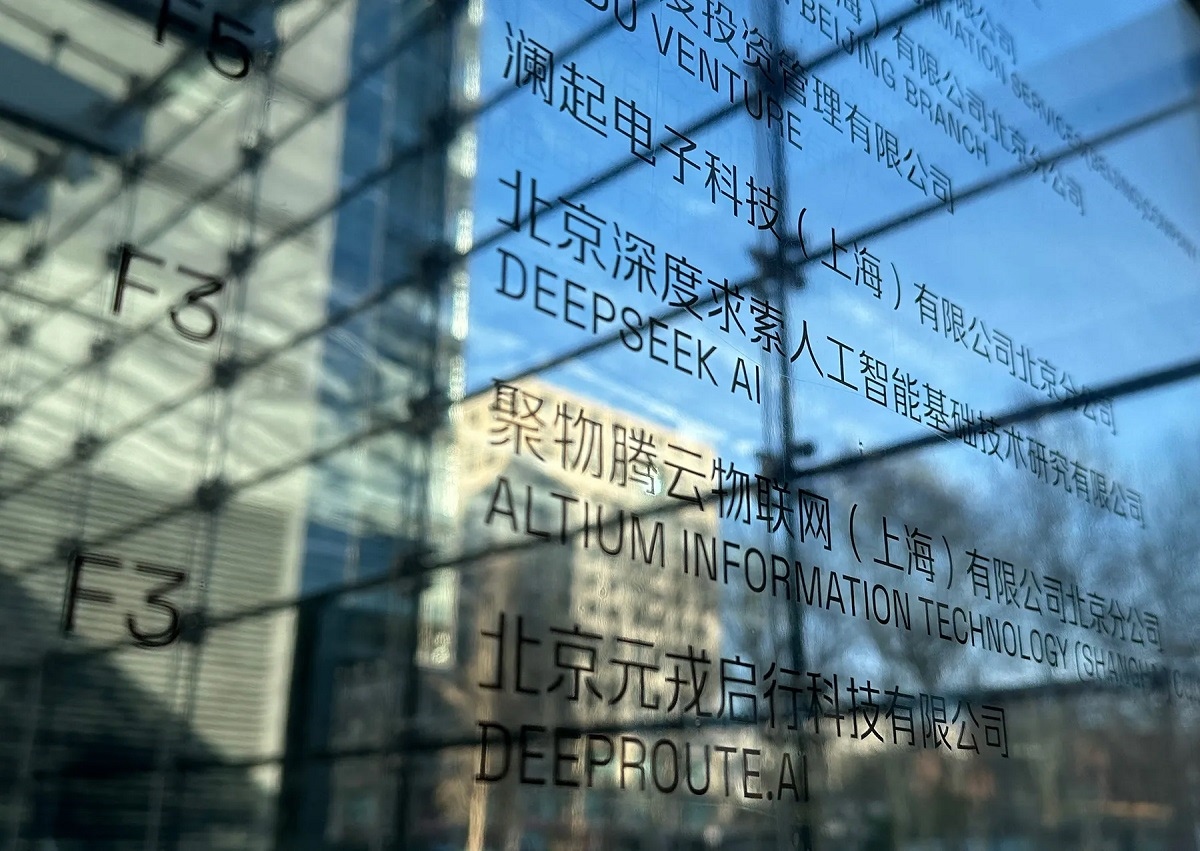 F5
有限公司
MATION SERVICES
海）有限公司北京分公司
BEIJING BRANCH
投资管理有限公司
VENTURE
澜起电子科技（上海）有限公司北京分公司
F3
北京深度求索人工智能基础技术研究有限公司
DEEPSEEK AI
聚物腾云物联网（上海）有限公司北京分公司
ALTIUM INFORMATION TECHNOLOGY (SHANGHAI)
F3
北京元戎启行科技有限公司
DEEPROUTE.AI